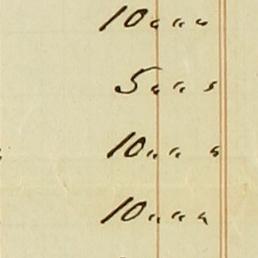 10 " " "
5 " " "
10 " " "
10 " " "